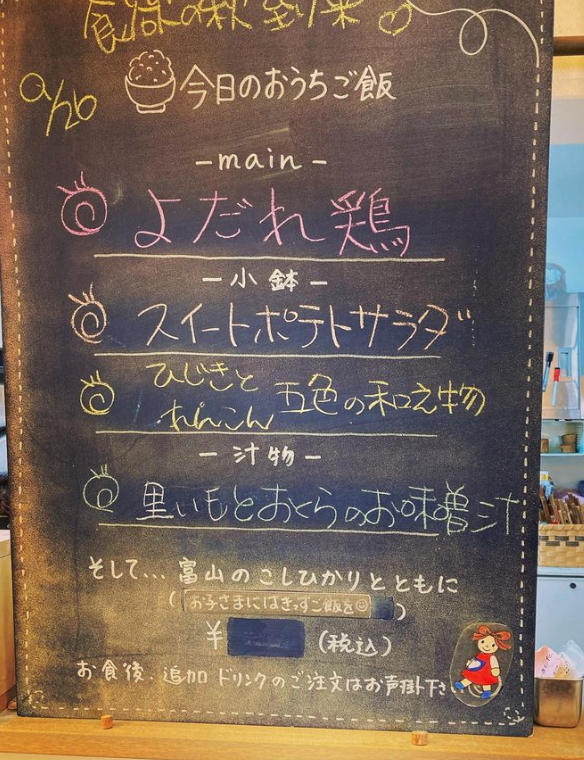 食欲の秋到来
9/26
今日のおうちご飯
-main-
よだれ鶏
-小鉢-
スイートポテトサラダ
ひじきと
れんこん 五色の和え物
-汁物-
里いもとおくらのお味噌汁
そして... 富山のこしひかりとともに
(お子さまにはきっずご飯を☺)
¥ (税込)
お食後、追加ドリンクのご注文はお声掛下さ